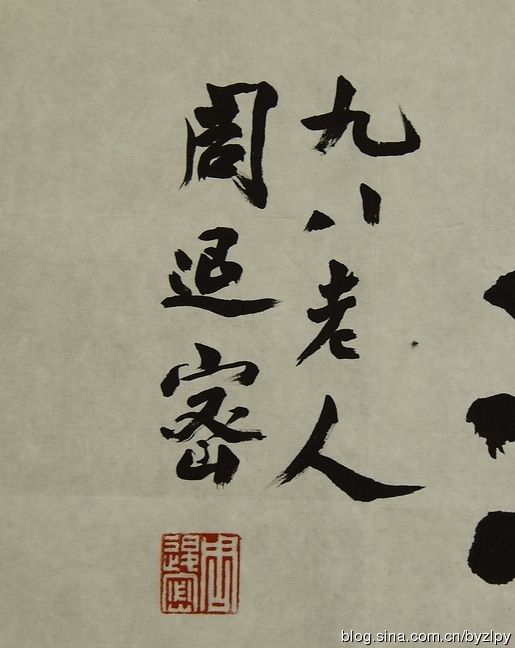 九八老人
周退密
周退密
blog.sina.com.cn/byzlpy